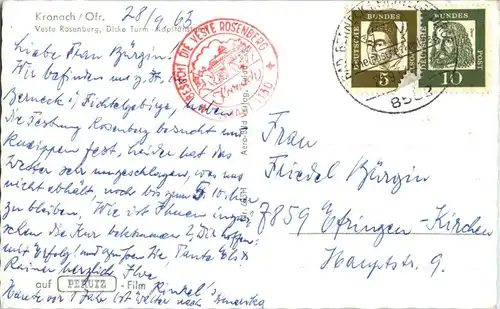 Kronach / Ofr.
Veste Rosenberg, Dicke Turm
28/9 63
BESUCHT DIE VESTE ROSENBERG
Liebe Frau Bürgin.
Wir befinden uns z. Z. in
Berneck i/ Fichtelgebirge, haben
die Festung Rosenberg besucht und
kneippen fest, leider hat das
Wetter sehr umgeschlagen, was uns
nicht abhält, noch bis zum 5. 10. hier
zu bleiben. Wie ist Ihnen inzwi-
schen die Kur bekommen? Die hoffen-
mit Erfolg! und grüßen Sie Tante Elis
Rainer herzlich Ihre
Rinkel's
Heute vor 1 Jahr ist Walter nach Amerika
auf PERUTZ - Film
Aero-Bild Verlag,
DEUTSCHE BUNDESPOST
5
DEUTSCHE BUNDESPOST
10
Frau
Friedel Bürgin
7859 Efringen-Kirchen
Hauptstr. 9.